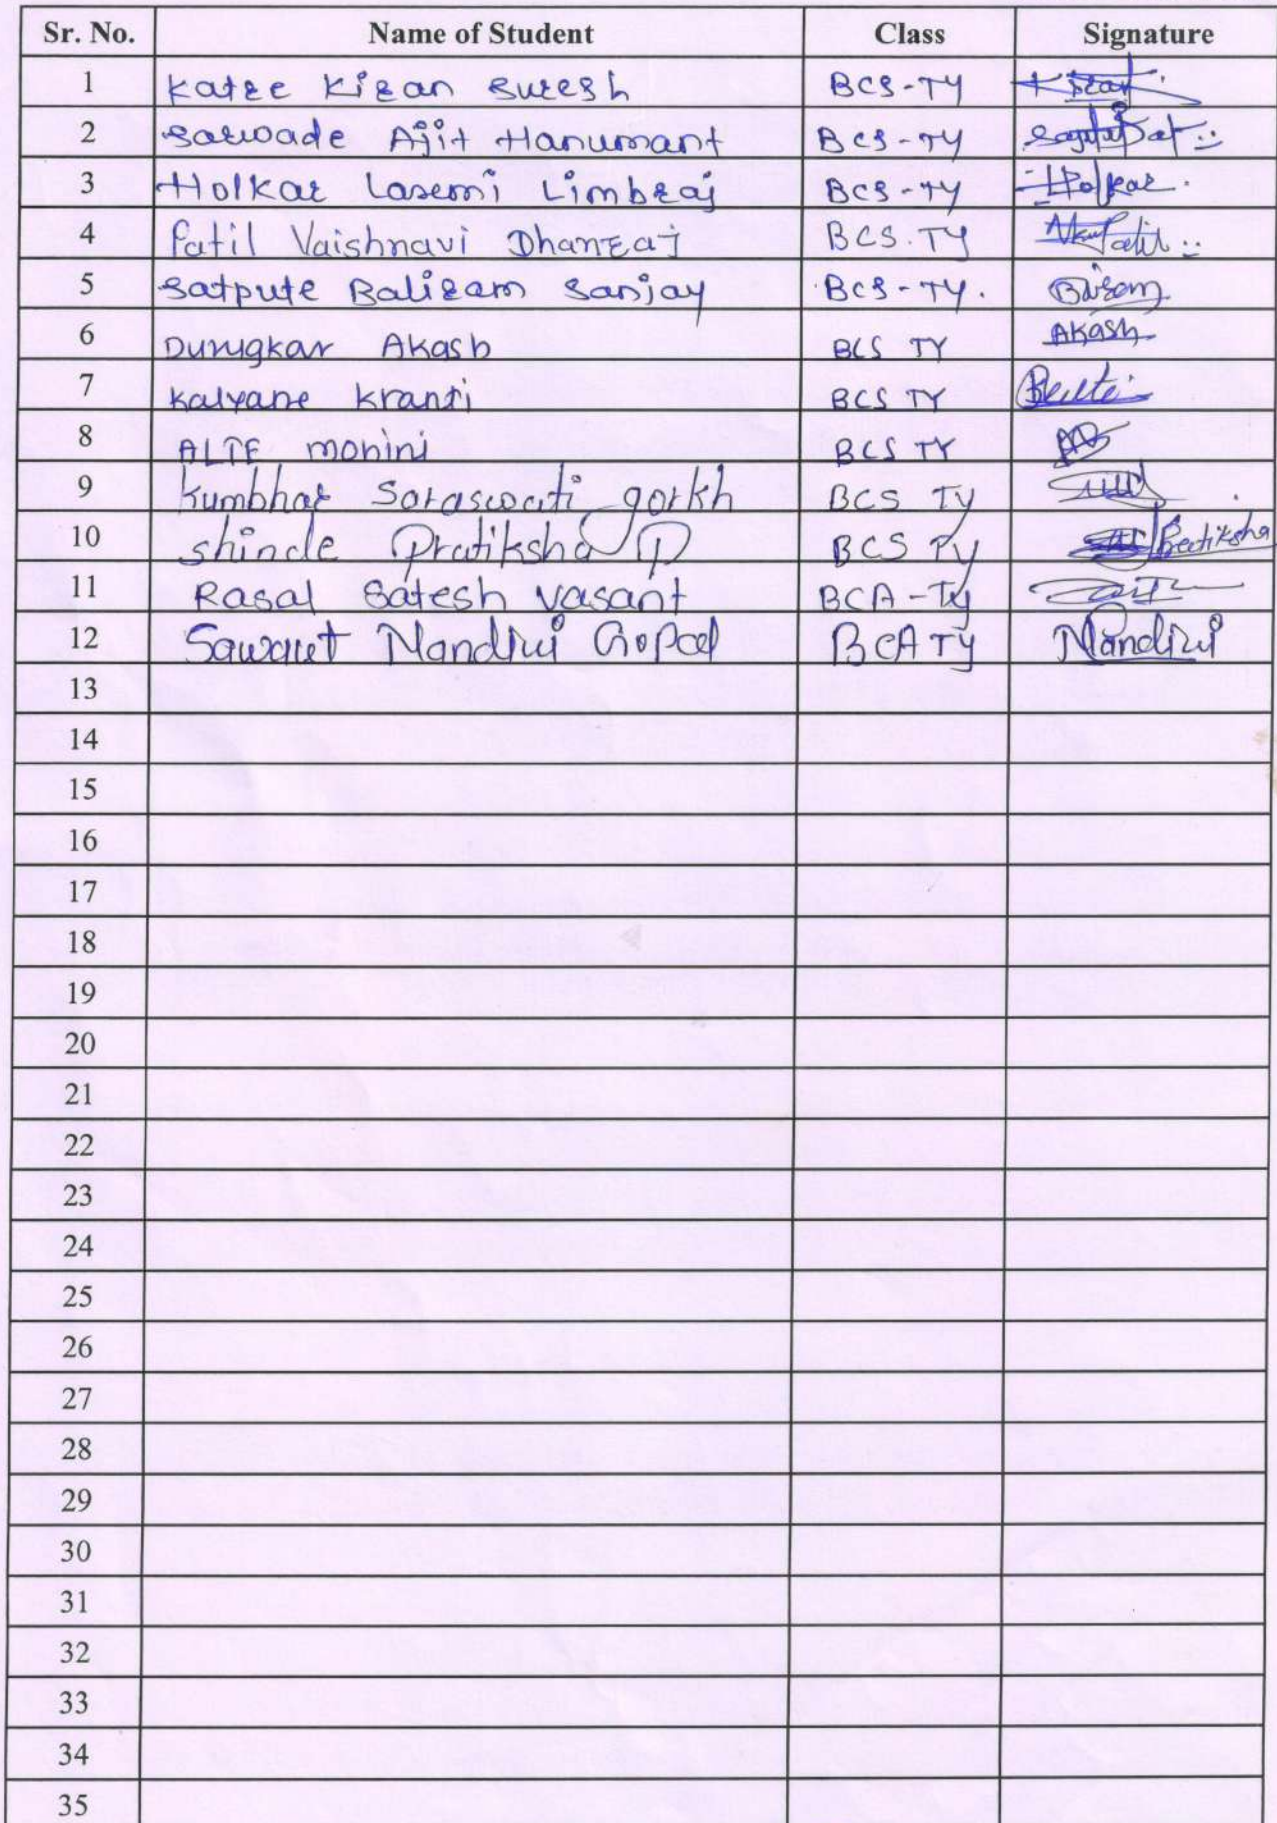 Sr. No. Name of Student Class Signature
1 Katre Kiran Suresh BCS-TY Kiran
2 Sarwade Ajit Hanumant BCS-TY
3 Holkar Laxmi Limbraj BCS-TY Holkar
4 Patil Vaishnavi Dhanraj BCS.TY Patil
5 Satpute Baliram Sanjay BCS-TY.
6 Durugkar Akash BCS TY Akash
7 Kalyane Kranti BCS TY
8 ALTE mohini BCS TY
9 Kumbhar Saraswati gorkh BCS TY
10 shinde Pratiksha P BCS TY Pratiksha
11 Rasal Satesh Vasant BCA-TY
12 Sawant Nandini Gopal BCA TY Nandini
13
14
15
16
17
18
19
20
21
22
23
24
25
26
27
28
29
30
31
32
33
34
35